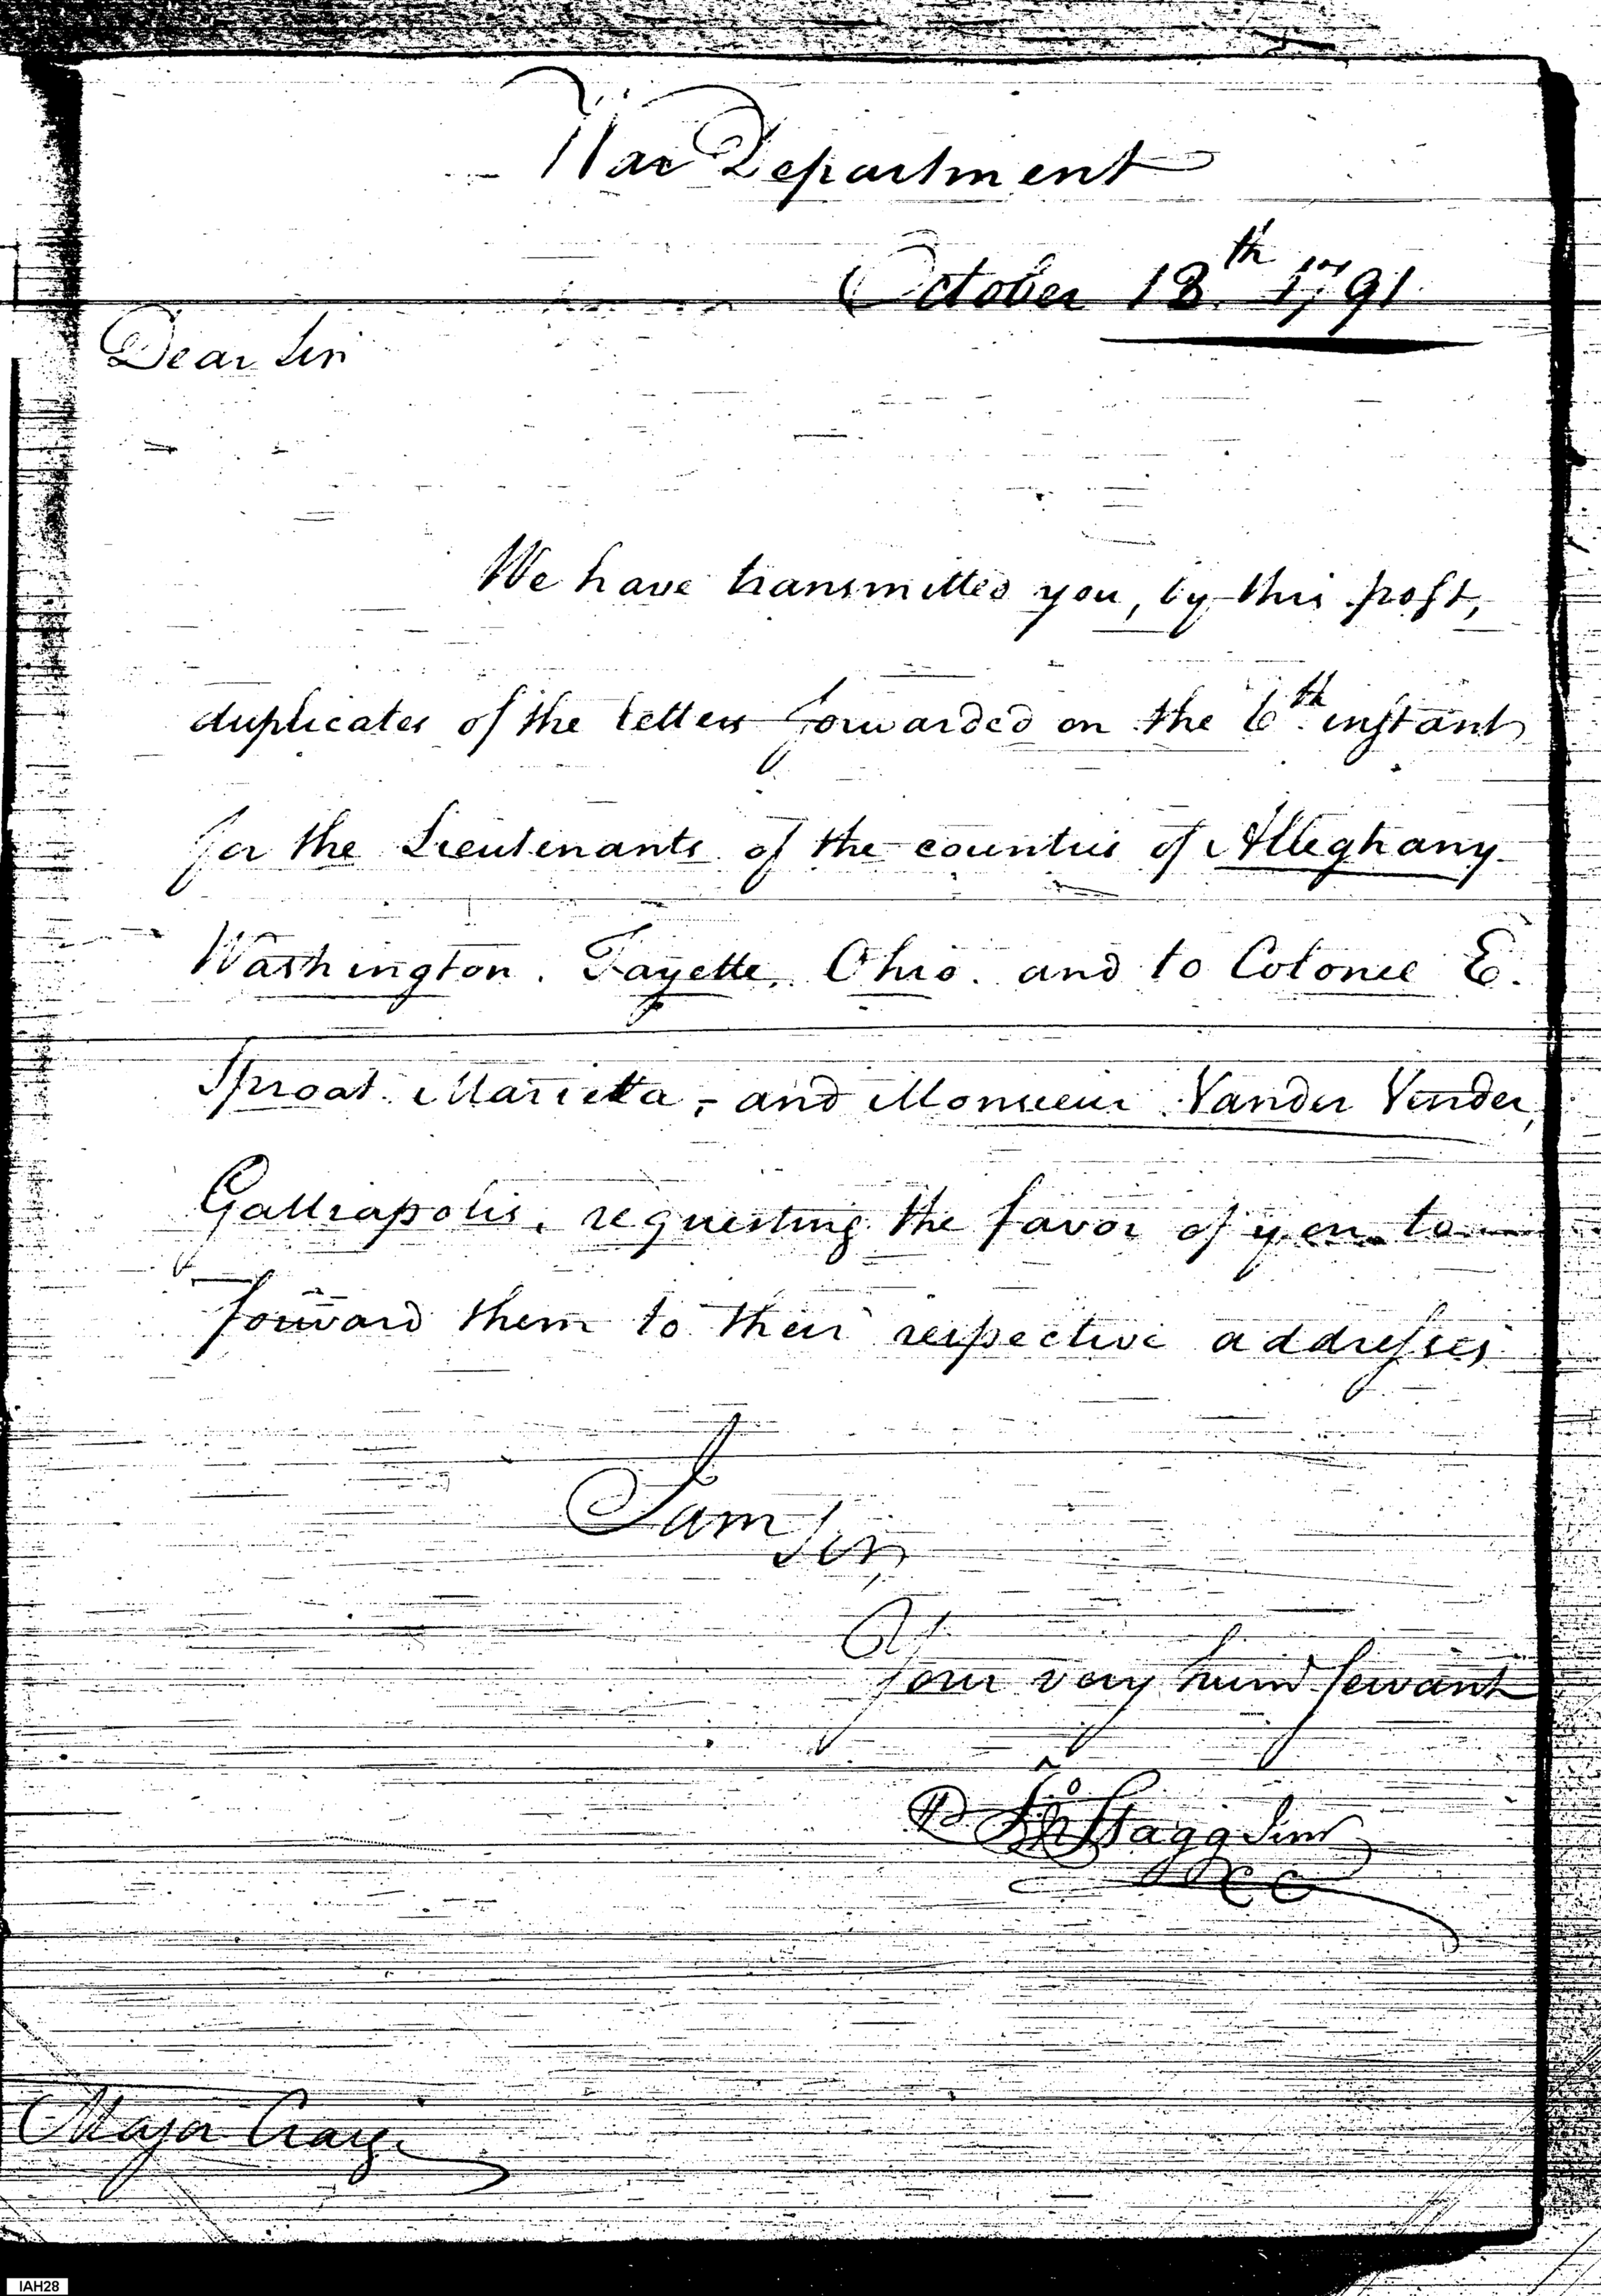 War Department
October 13th 1791
Dear Sir
We have transmitted you, by this post,
duplicates of the letters forwarded on the 6th instant
for the Lieutenants of the counties of Alleghany
Washington. Fayette, Ohio. and to Colonel E.
Sproat Marietta, - and Monsieur Vander Vender,
Galliapolis, requesting the favor of you to
forward them to their respective addresses
I am
Sir,
Your very hum servant
Stagg Junr
CC
Major Craig
IAH28